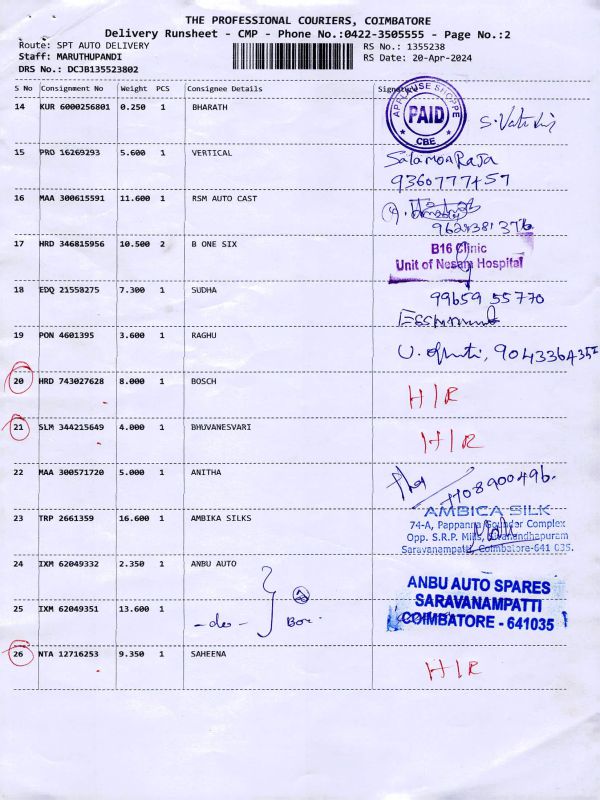 THE PROFESSIONAL COURIERS, COIMBATORE
Delivery Runsheet - CMP - Phone No.:0422-3505555 - Page No.:2
Route: SPT AUTO DELIVERY RS No.: 1355238
Staff: MARUTHUPANDI RS Date: 20-Apr-2024
DRS No.: DCJB135523802
S No Consignment No Weight PCS Consignee Details Signature
14 KUR 6000256801 0.250 1 BHARATH
APPLAUSE SHOPPE
PAID
CBE
15 PRO 16269293 5.600 1 VERTICAL
Salamon Raja
9360777457
16 MAA 300615591 11.600 1 RSM AUTO CAST
17 HRD 346815956 10.500 2 B ONE SIX
B16 Clinic
Unit of Nesam Hospital
18 EDQ 21558275 7.300 1 SUDHA
99659 55770
19 PON 4601395 3.600 1 RAGHU
20 HRD 743027628 8.000 1 BOSCH H/R
21 SLM 344215649 4.000 1 BHUVANESVARI H/R
22 MAA 300571720 5.000 1 ANITHA
23 TRP 2661359 16.600 1 AMBIKA SILKS
AMBICA SILK
74-A, Pappanna Gounder Complex
Opp. S.R.P. Mills, Sivanandhapuram
Saravanampatti, Coimbatore-641 035.
24 IXM 62049332 2.350 1 ANBU AUTO
ANBU AUTO SPARES
SARAVANAMPATTI
COIMBATORE - 641035
25 IXM 62049351 13.600 1 -do- 2 Box
26 NTA 12716253 9.350 1 SAHEENA H/R